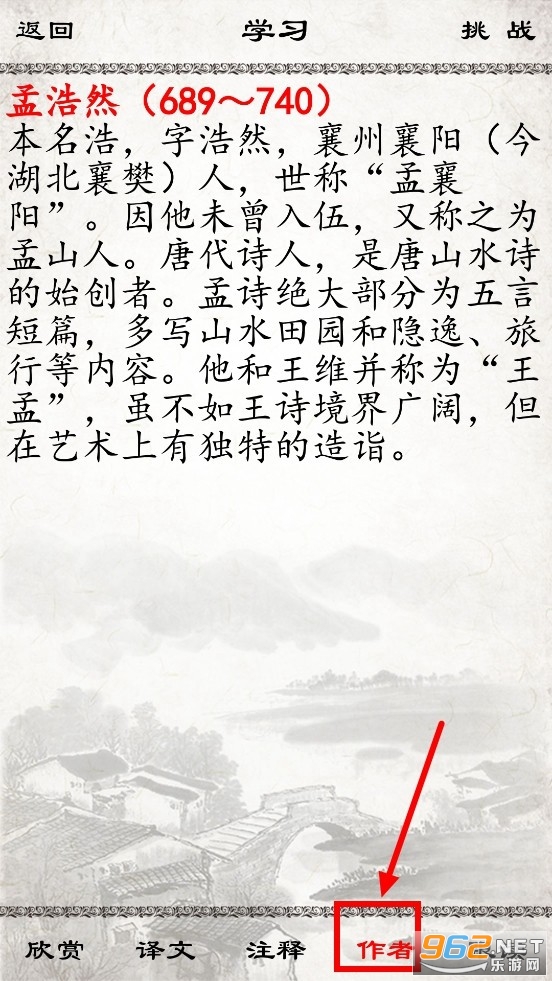 返回 学习 挑 战
孟浩然（689～740）
本名浩，字浩然，襄州襄阳（今
湖北襄樊）人，世称“孟襄
阳”。因他未曾入伍，又称之为
孟山人。唐代诗人，是唐山水诗
的始创者。孟诗绝大部分为五言
短篇，多写山水田园和隐逸、旅
行等内容。他和王维并称为“王
孟”，虽不如王诗境界广阔，但
在艺术上有独特的造诣。
欣赏 译文 注释 作者
962.NET
乐游网